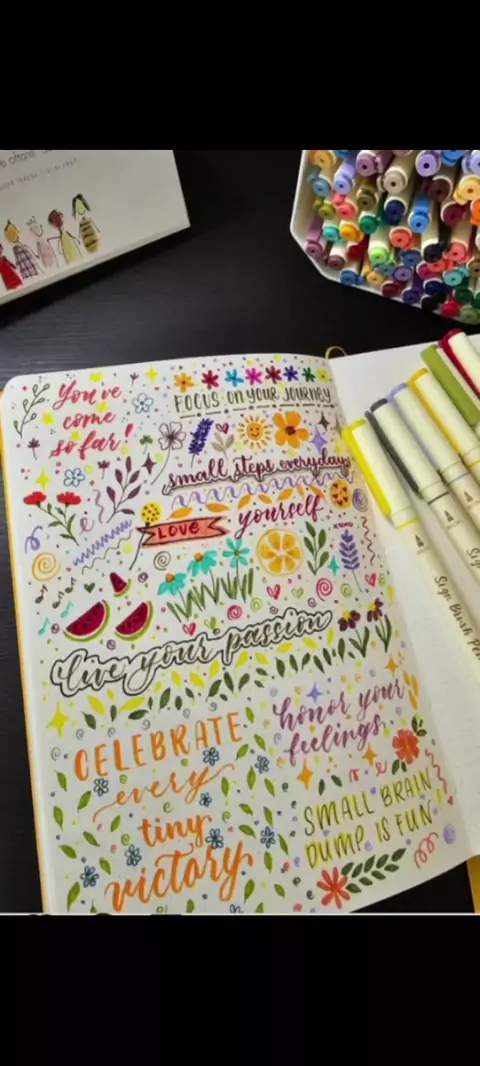 You've
come
so far!
FOCUS ON YOUR JOURNEY
small steps everyday
LOVE yourself
live your passion
CELEBRATE
every
tiny
victory
honor your
feelings
SMALL BRAIN
DUMP IS FUN!
Sign Brush Pen
Sign